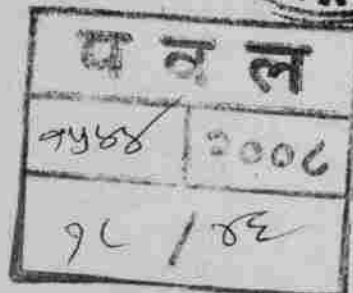 प व ल
१५४४ २००८
१८ / ४६